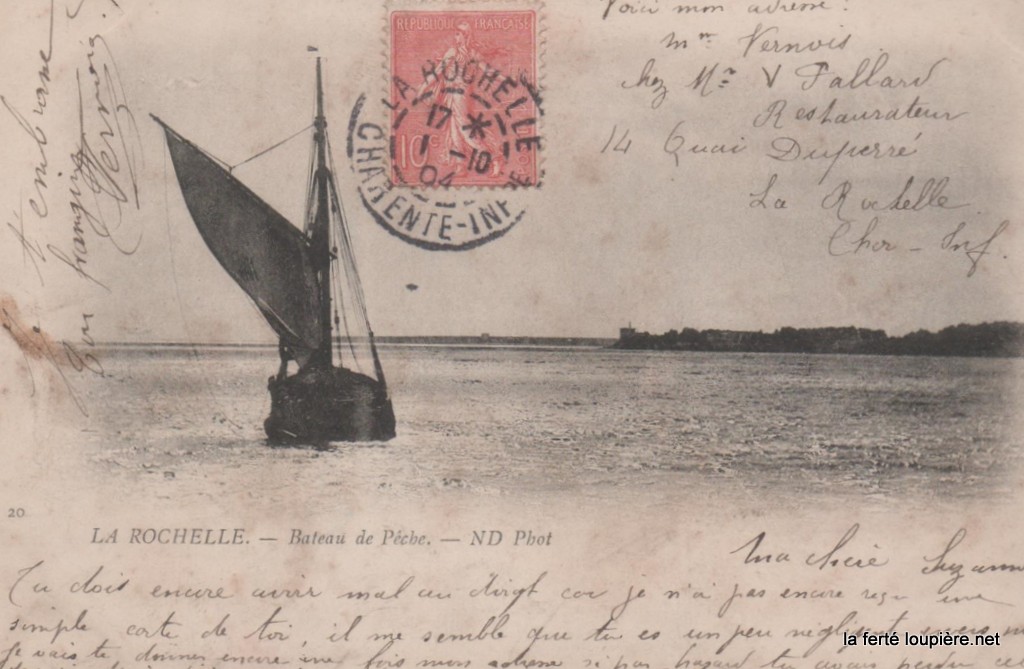 Voici mon adresse :
Mr Vernois
chez Mr V Fallard
Restaurateur
14 Quai Duperré
La Rochelle
Char-Inf.
t'embrasse
Ton frangin
Vernois
REPUBLIQUE FRANÇAISE
10c
LA ROCHELLE
17 *
1-10
04
CHARENTE-INFRE
20
LA ROCHELLE. — Bateau de Pêche. — ND Phot
Ma chère Suzanne
Tu dois encore avoir mal au doigt car je n'ai pas encore reçu une
simple carte de toi, il me semble que tu es un peu négligente
je vais te donner encore une fois mon adresse si par hasard tu
la ferté loupière.net